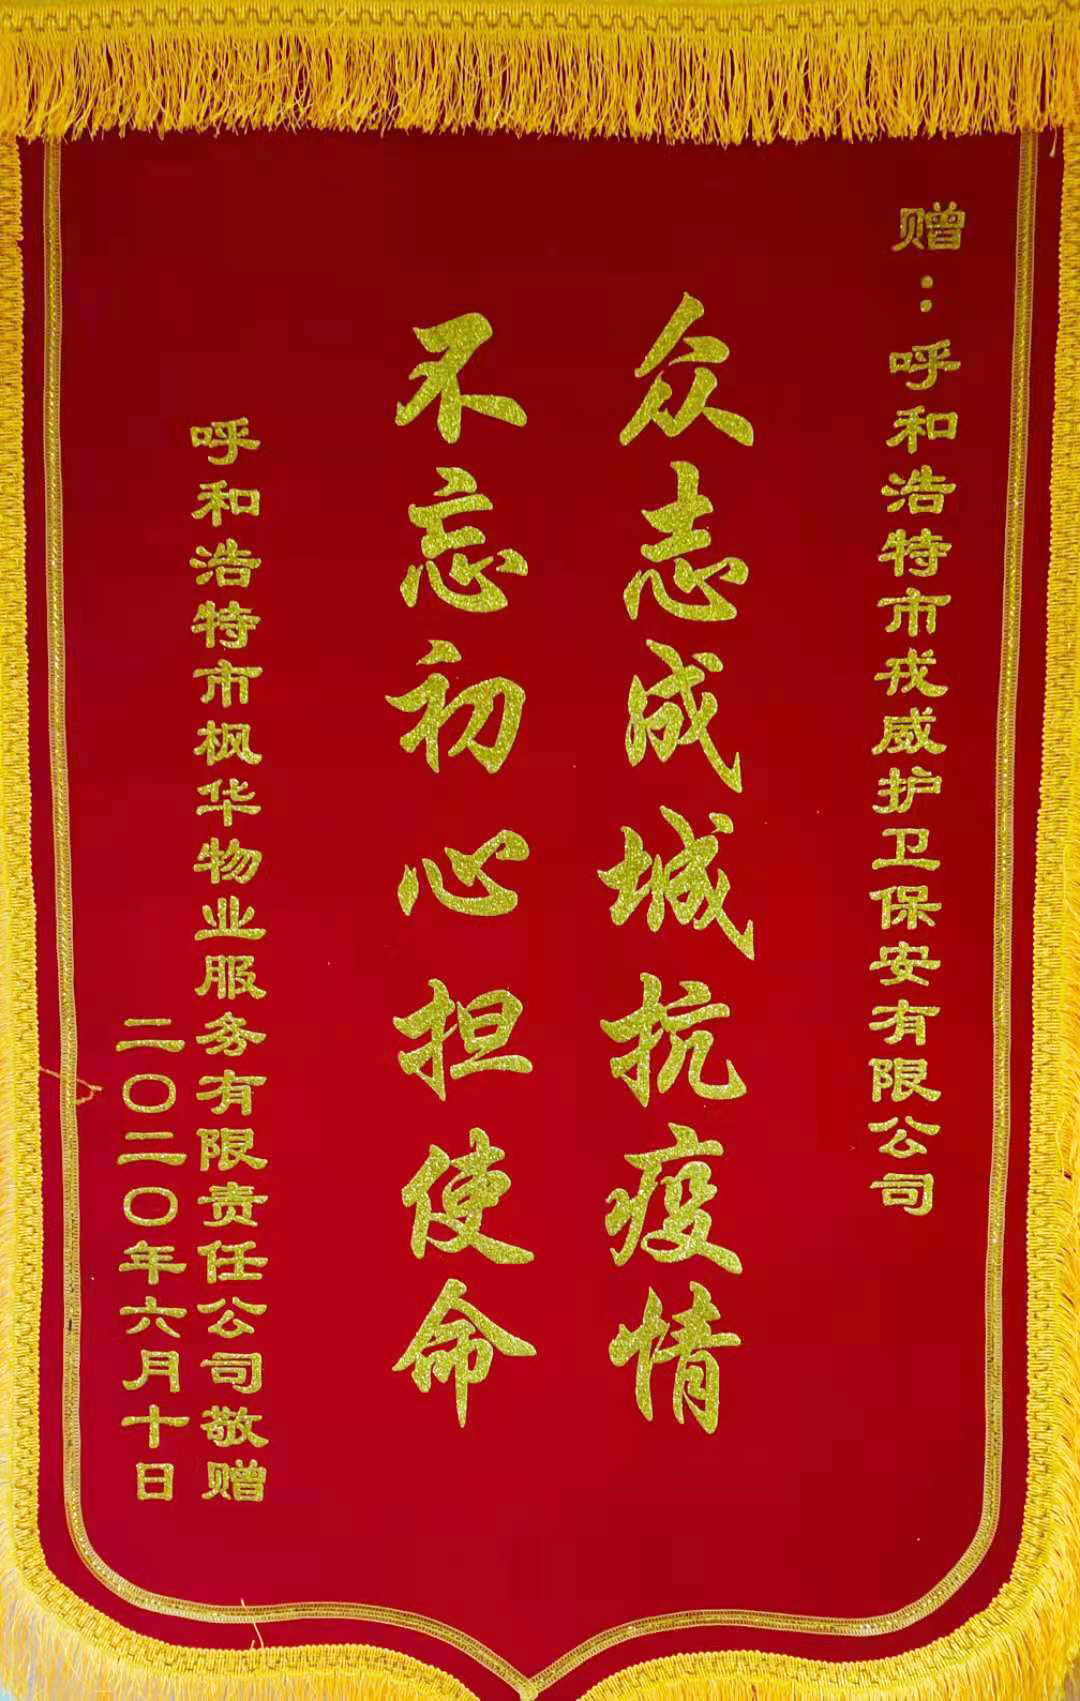 赠：呼和浩特市戎威护卫保安有限公司
众志成城抗疫情
不忘初心担使命
呼和浩特市枫华物业服务有限责任公司敬赠
二〇二〇年六月十日